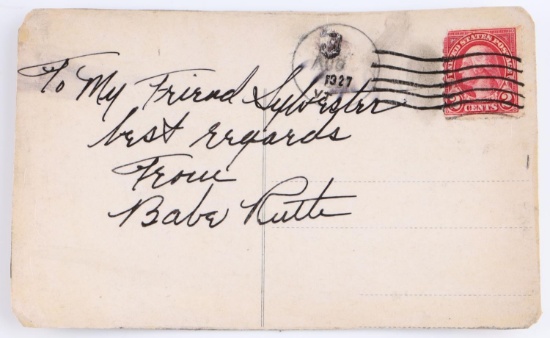 AUG
1927
UNITED STATES POSTAGE
2 CENTS 2
To My Friend Sylvester
best regards
From
Babe Ruth